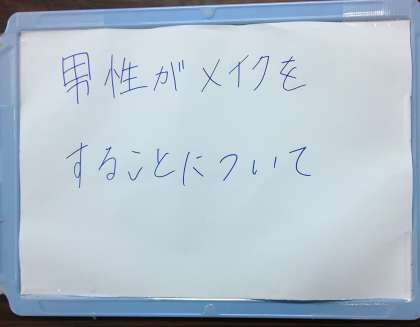 男性がメイクを
することについて